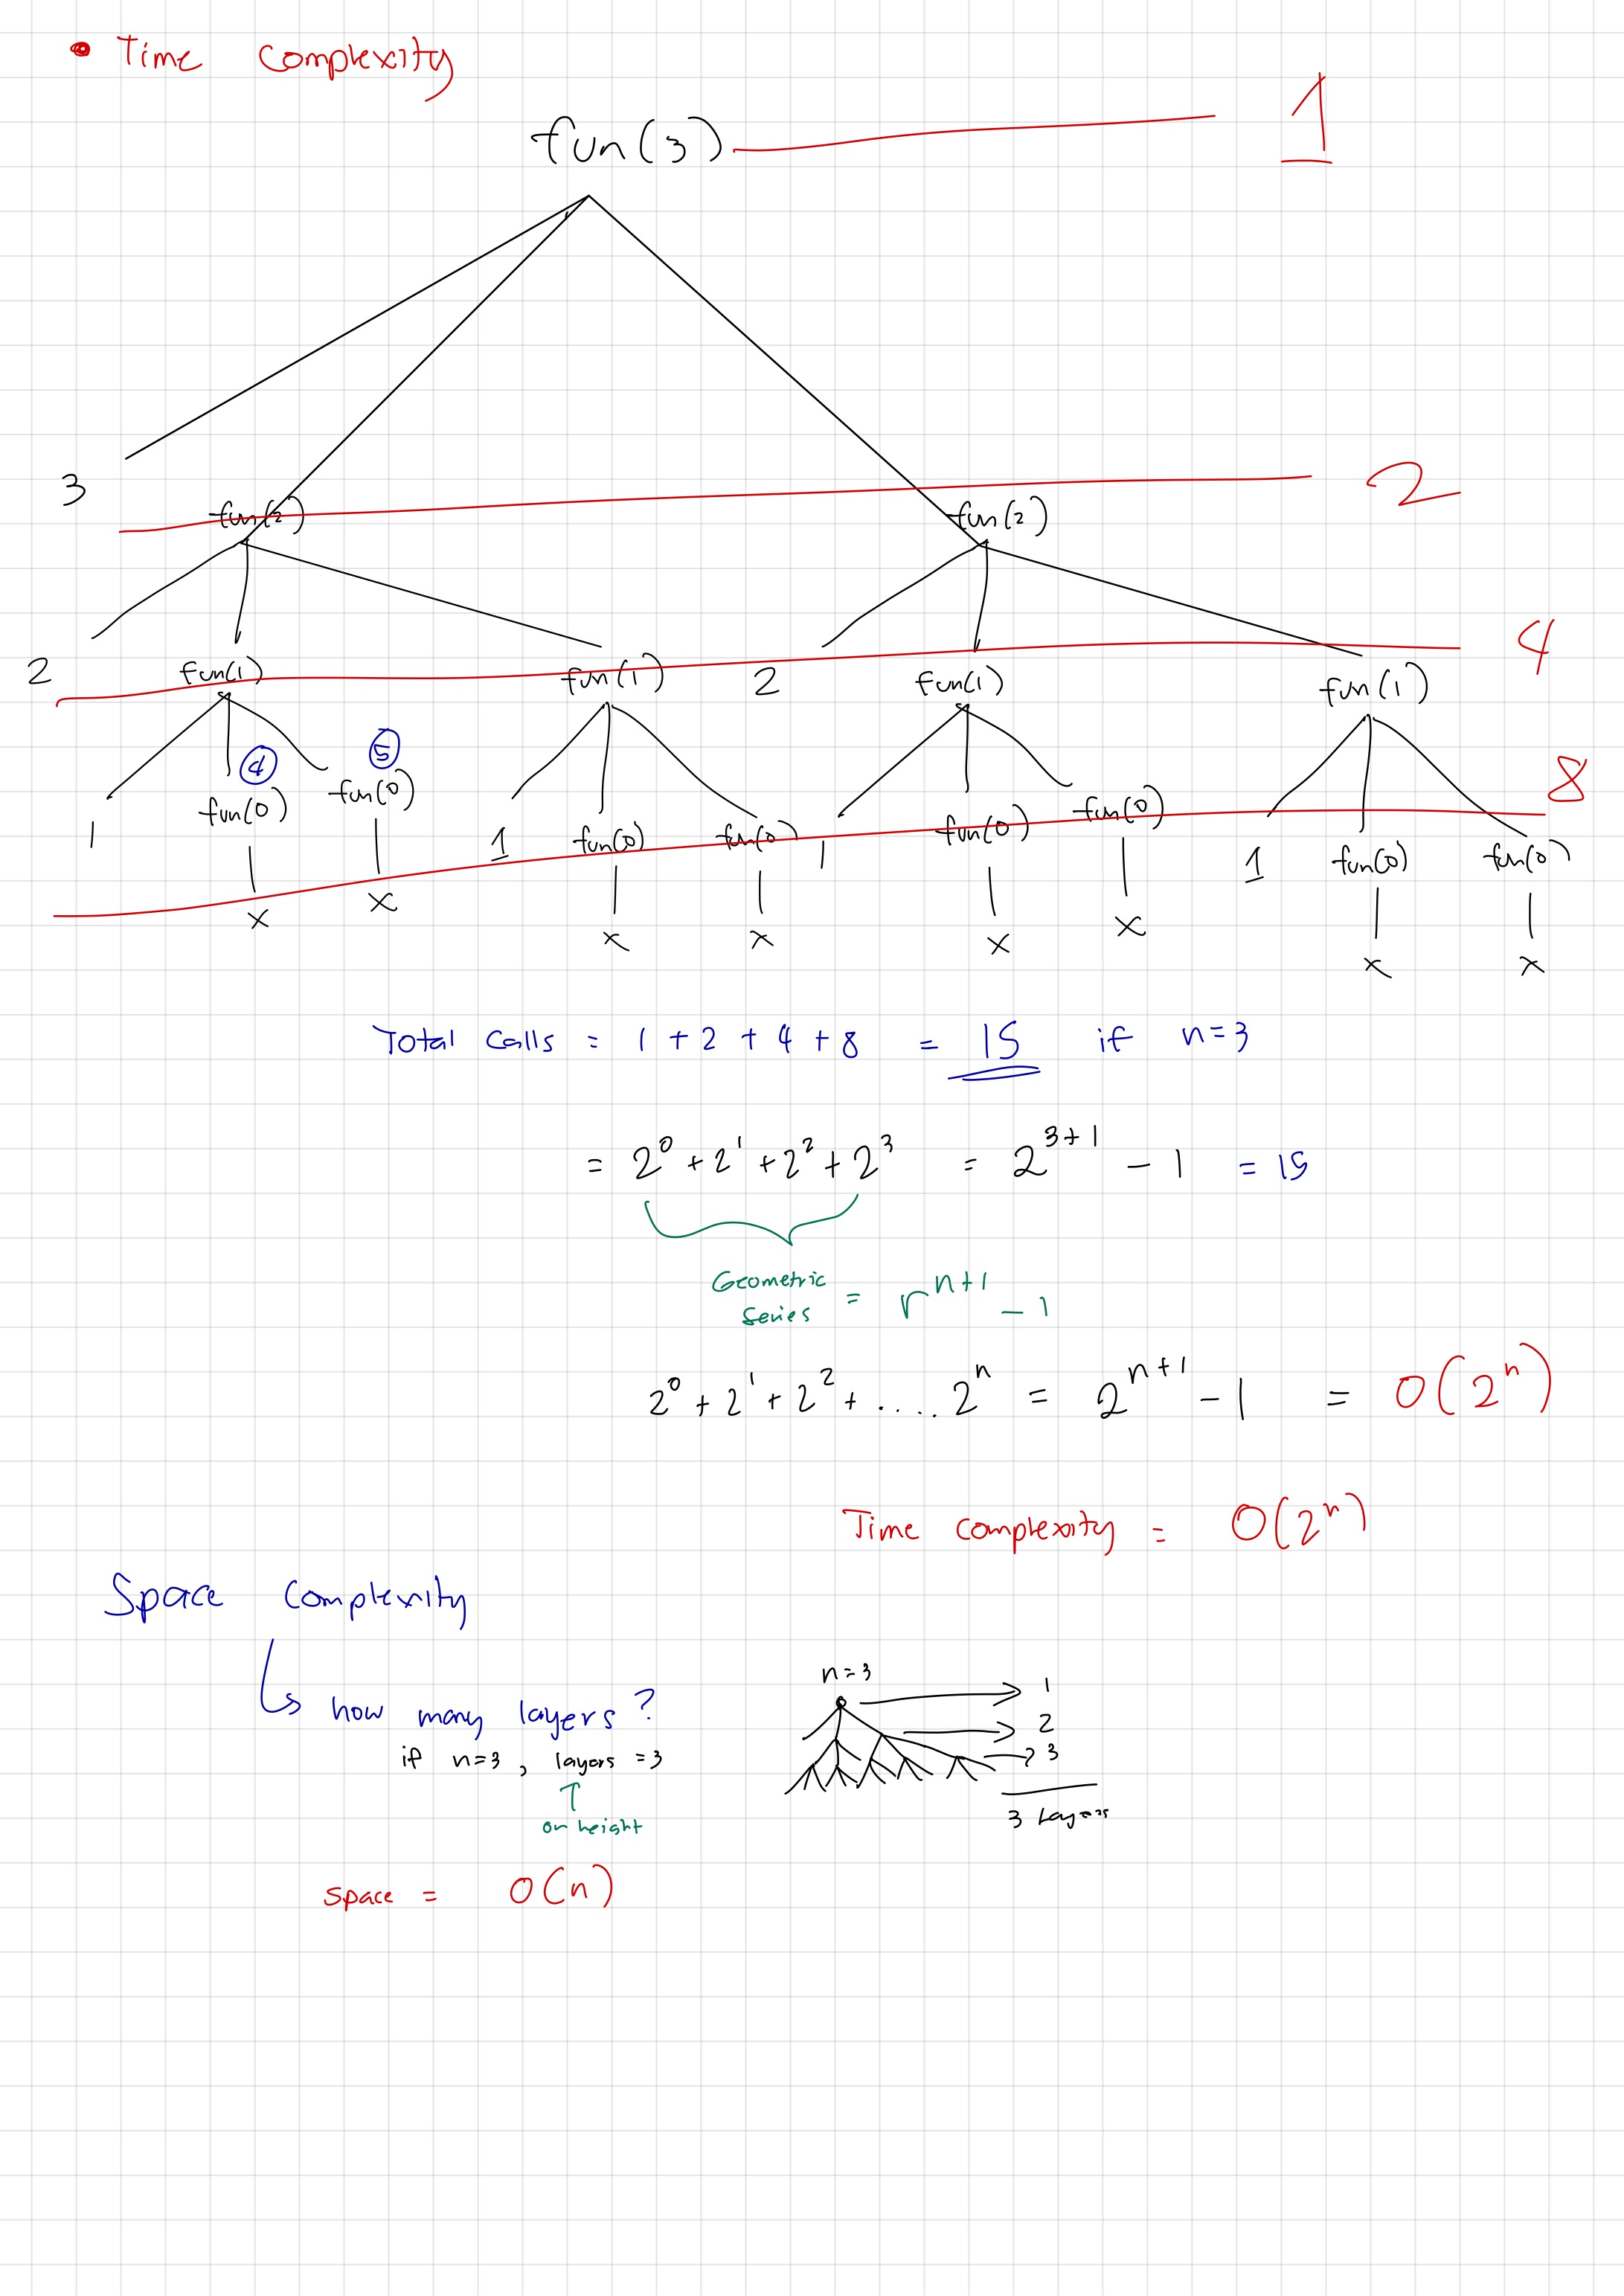 • Time Complexity
fun(3) 1
3 fun(2) fun(2) 2
2 fun(1) fun(1) 2 fun(1) fun(1) 4
④ ⑤
1 fun(0) fun(0) 1 fun(0) fun(0) 1 fun(0) fun(0) 1 fun(0) fun(0) 8
x x x x x x x x
Total Calls = 1 + 2 + 4 + 8 = 15 if n=3
= 2⁰ + 2¹ + 2² + 2³ = 2³⁺¹ − 1 = 15
Geometric
Series = rⁿ⁺¹ − 1
2⁰ + 2¹ + 2² + .... 2ⁿ = 2ⁿ⁺¹ − 1 = O(2ⁿ)
Time Complexity = O(2ⁿ)
Space Complexity
how many layers?
if n=3, layers =3
or height
space = O(n)
n=3
1
2
3
3 Layers